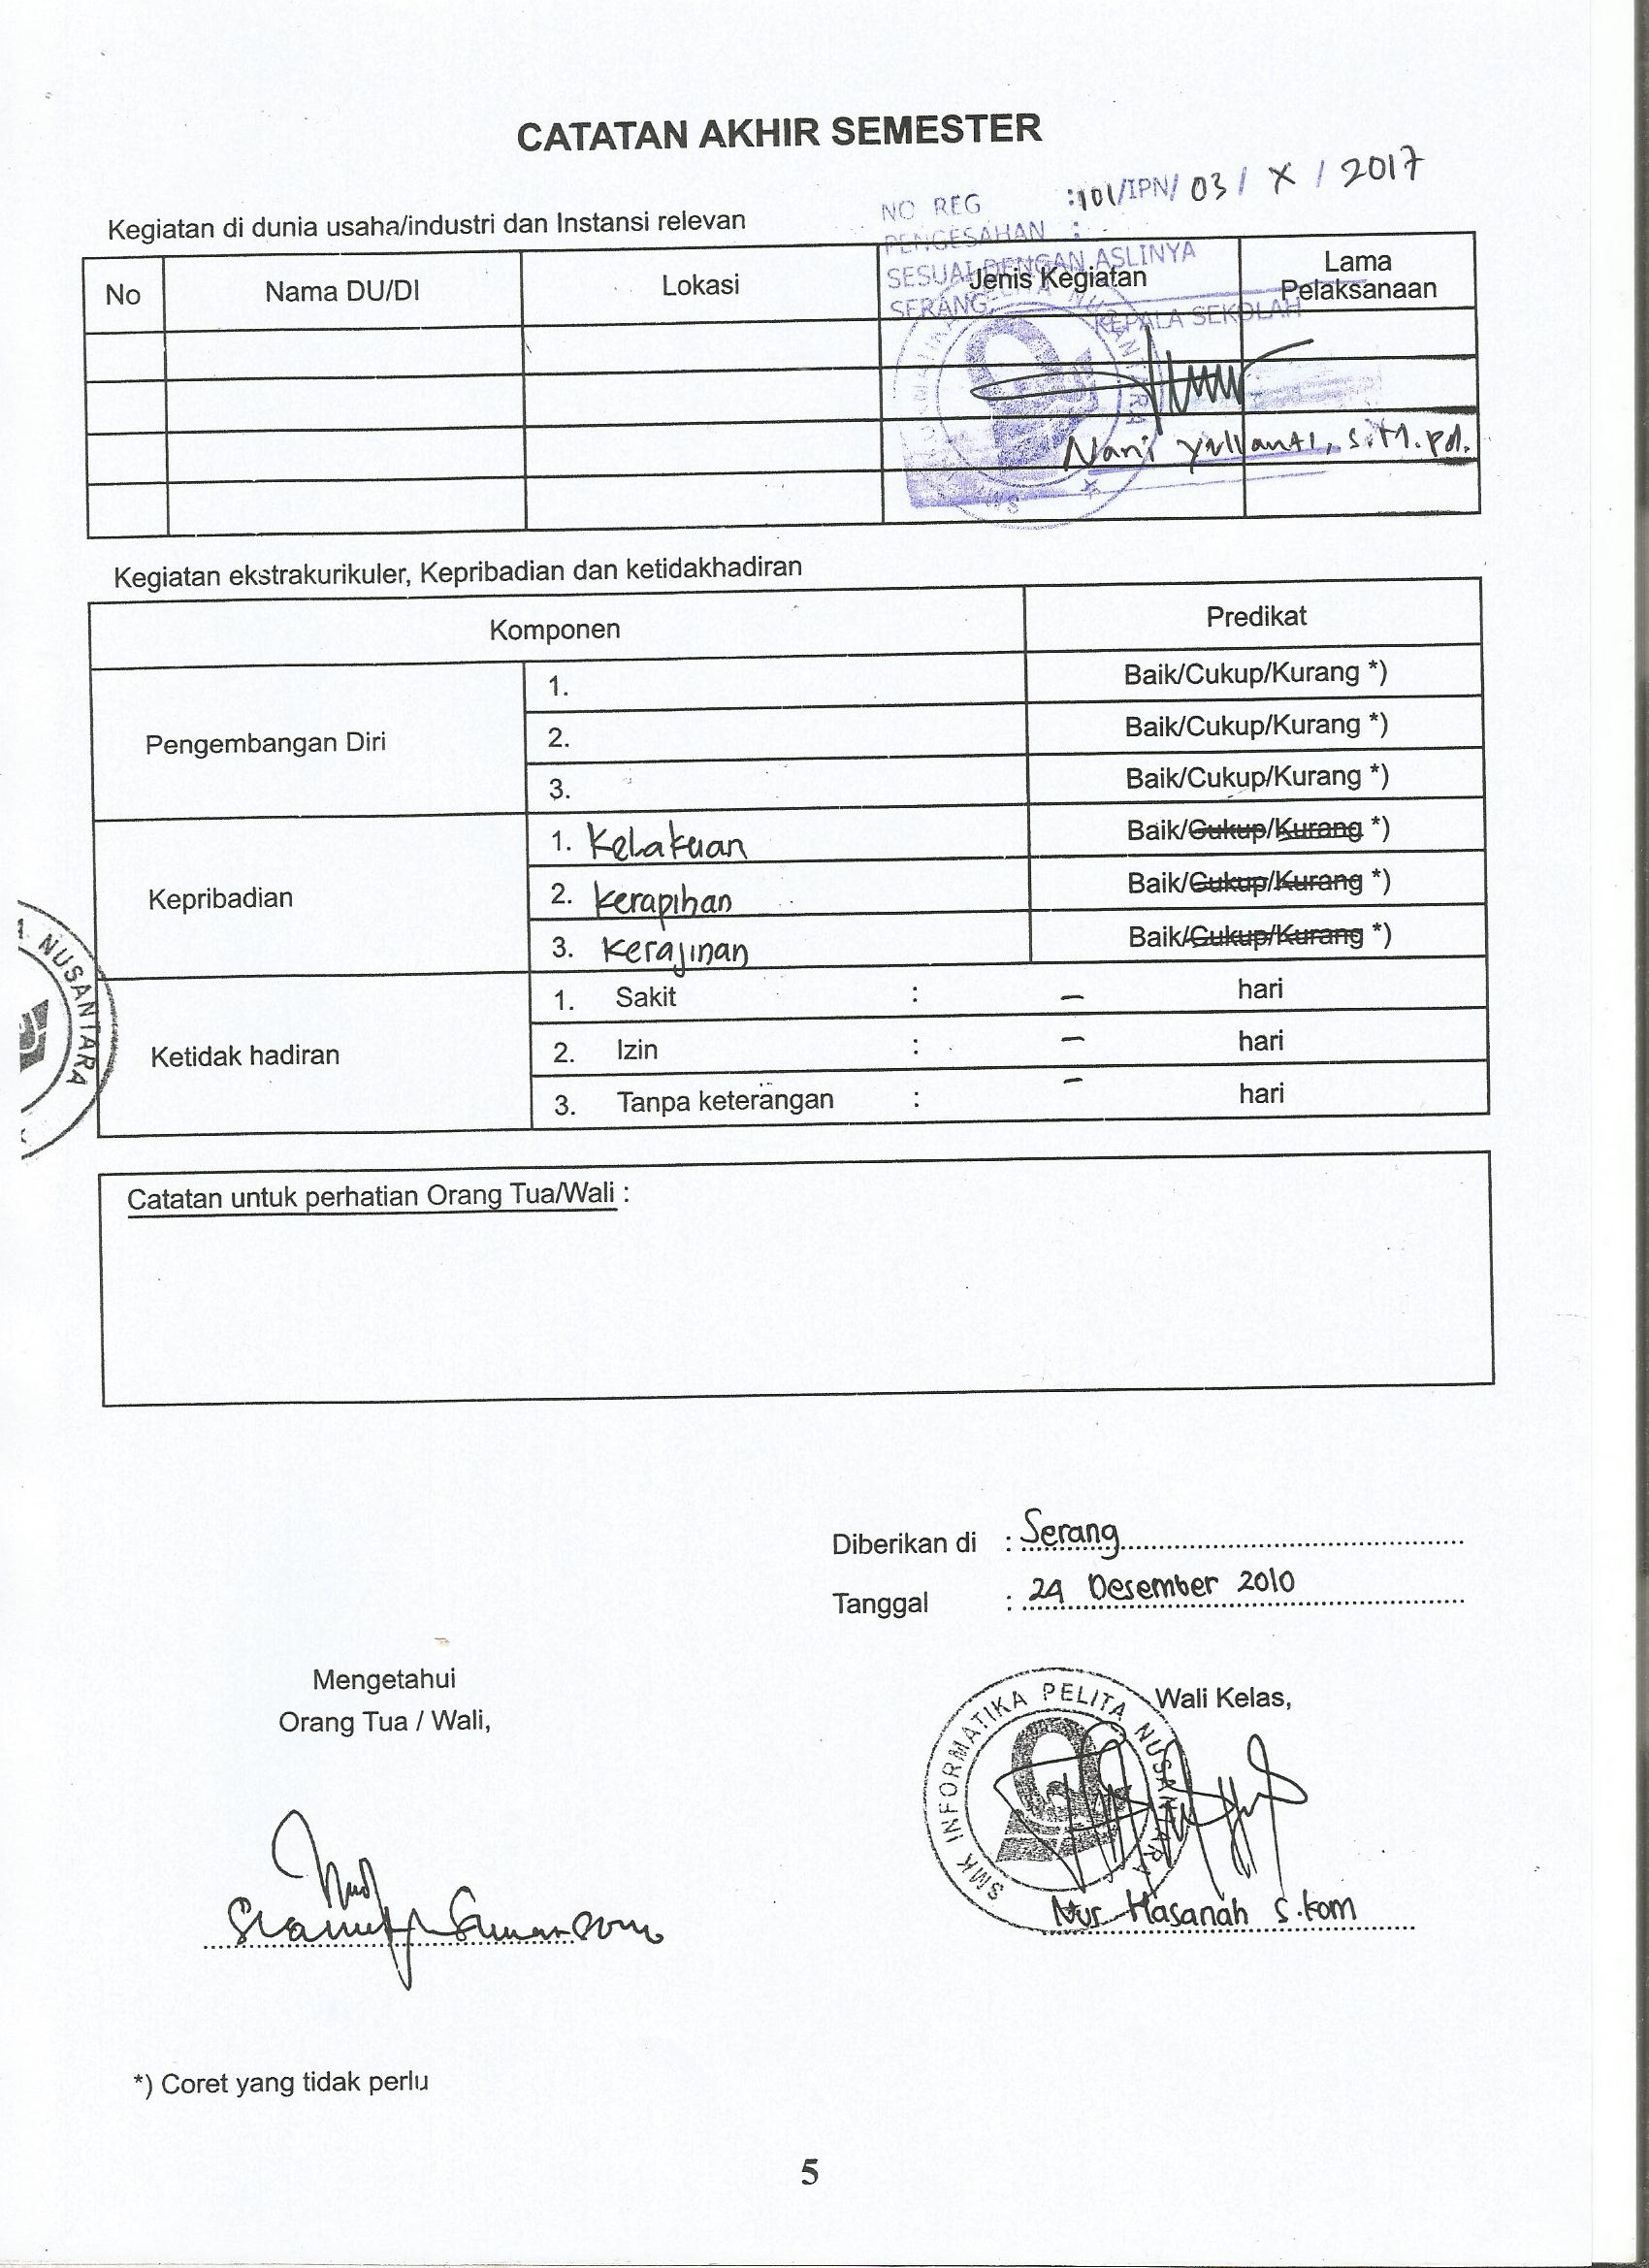 CATATAN AKHIR SEMESTER
NO REG :101/IPN/ 03 / X / 2017
Kegiatan di dunia usaha/industri dan Instansi relevan
PENGESAHAN :
SESUAI DENGAN ASLINYA
SERANG
KEPALA SEKOLAH
No Nama DU/DI Lokasi Jenis Kegiatan Lama Pelaksanaan
Nani Yulianti, S.M.Pd.
Kegiatan ekstrakurikuler, Kepribadian dan ketidakhadiran
Komponen Predikat
Pengembangan Diri
1. Baik/Cukup/Kurang *)
2. Baik/Cukup/Kurang *)
3. Baik/Cukup/Kurang *)
Kepribadian
1. Kelakuan Baik/Cukup/Kurang *)
2. Kerapihan Baik/Cukup/Kurang *)
3. Kerajinan Baik/Cukup/Kurang *)
NUSANTARA
Ketidak hadiran
1. Sakit : – hari
2. Izin : – hari
3. Tanpa keterangan : – hari
Catatan untuk perhatian Orang Tua/Wali :
Diberikan di : Serang
Tanggal : 24 Desember 2010
Mengetahui
Orang Tua / Wali,
Wali Kelas,
SMK INFORMATIKA PELITA NUSANTARA
Nur Hasanah S.kom
*) Coret yang tidak perlu
5